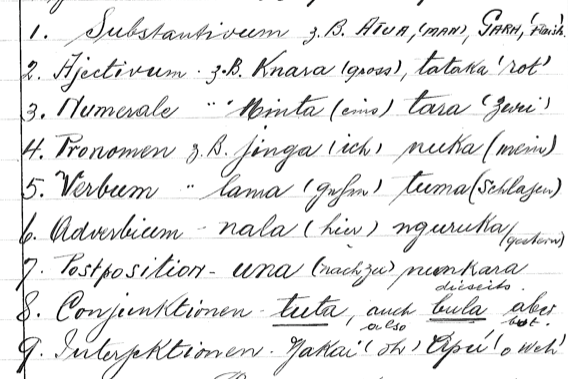 1. Substantivum z.B. ATUA, (MAN), GARA, 'Fleisch.
2. Ajectivum. z.B. Knara (gross), tataka 'rot'
3. Numerale " " Ninta (eins) tara 'zwei)
4. Pronomen z.B. jinga (ich) nuka (mein)
5. Verbum " lama (gehen) tuma (schlagen)
6. Adverbium - nala (hier) nguruka (gestern)
7. Postposition - una (nach, zu) nunkara
diesseits.
8. Conjunktionen - tuta, auch bula aber
also but.
9. Interjektionen. Jakai (oh) Apu! 'o weh'